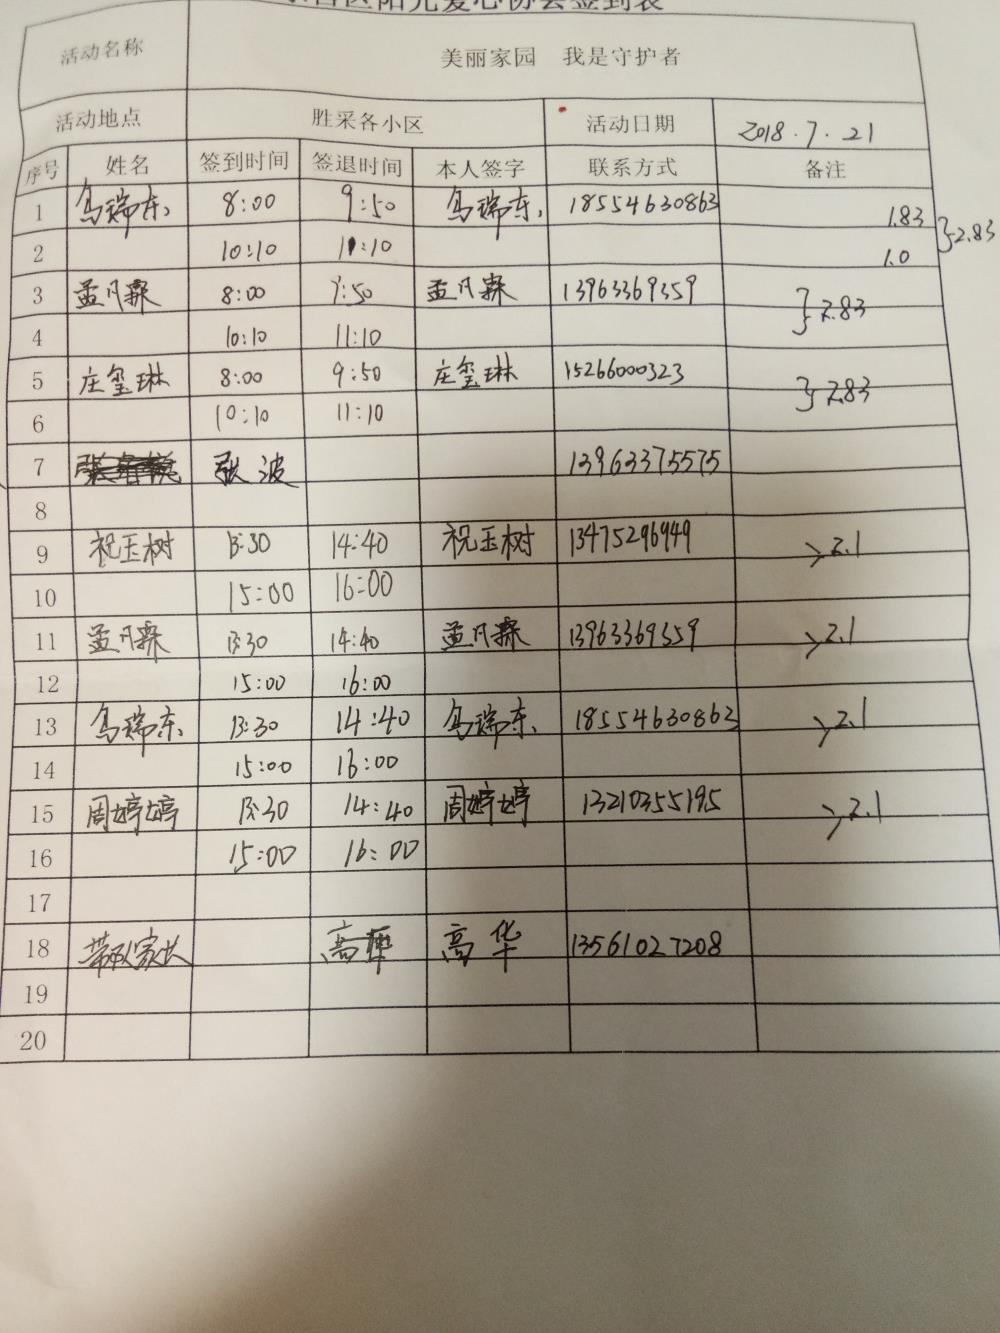 区阳光爱心协会签到表
活动名称 美丽家园 我是守护者
活动地点 胜采各小区 活动日期 2018.7.21
序号 姓名 签到时间 签退时间 本人签字 联系方式 备注
1 鸟瑞东 8:00 9:50 鸟瑞东 18554630863 1.83 }2.83
2 10:10 11:10 1.0
3 孟凡霖 8:00 9:50 孟凡霖 13963369359 }2.83
4 10:10 11:10
5 庄玺琳 8:00 9:50 庄玺琳 15266000323 }2.83
6 10:10 11:10
7 张波 13963375575
8
9 祝玉树 13:30 14:40 祝玉树 13475296949 >2.1
10 15:00 16:00
11 孟凡霖 13:30 14:40 孟凡霖 13963369359 >2.1
12 15:00 16:00
13 鸟瑞东 13:30 14:40 鸟瑞东 18554630863 >2.1
14 15:00 16:00
15 周婷婷 13:30 14:40 周婷婷 13210355195 >2.1
16 15:00 16:00
17
18 带队家长 高华 高华 13561027208
19
20